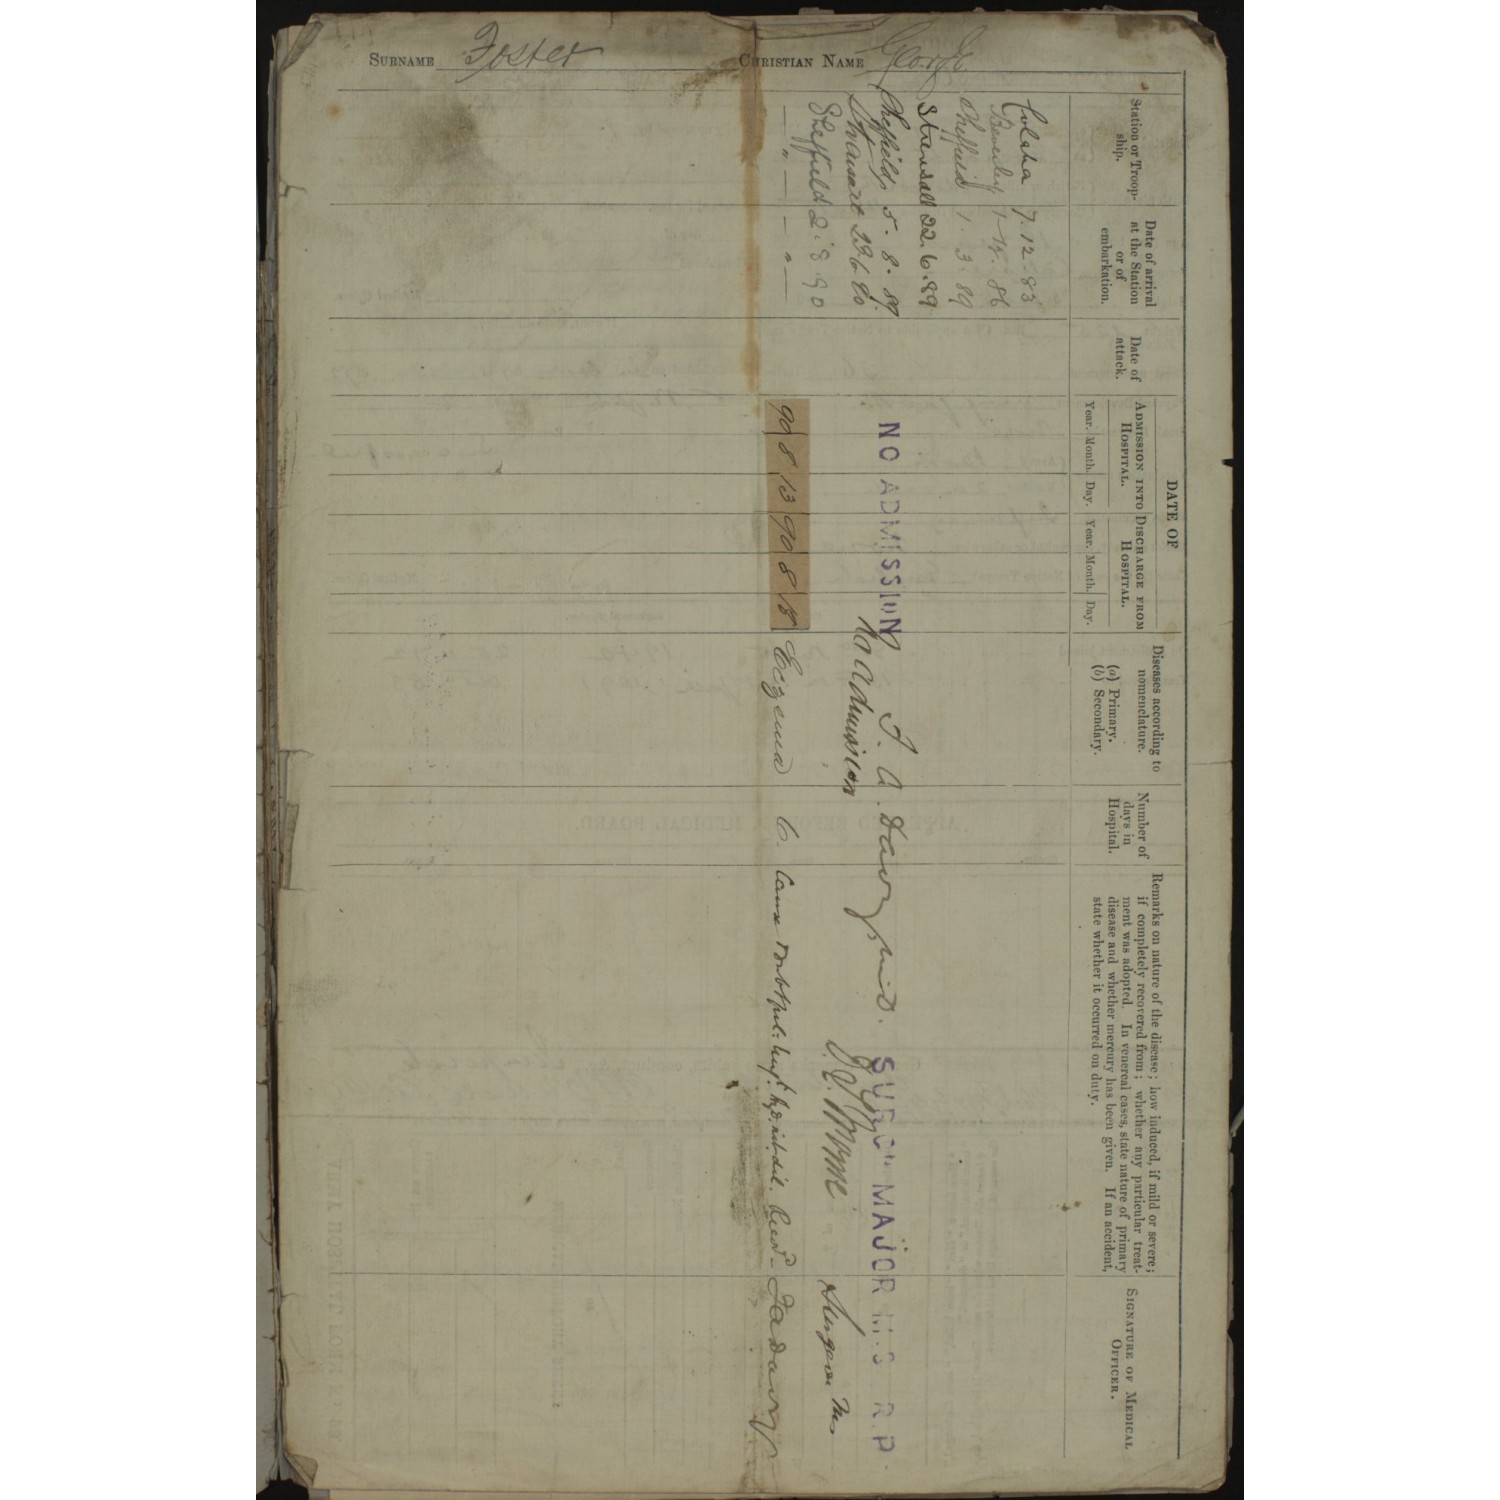 SURNAME Foster CHRISTIAN NAME George
Station or Troop-
ship.
Date of arrival
at the Station
or of
embarkation.
Date of
attack.
DATE OF
ADMISSION INTO
HOSPITAL.
Year. Month. Day.
DISCHARGE FROM
HOSPITAL.
Year. Month. Day.
Diseases according to
nomenclature.
(a) Primary.
(b) Secondary.
Number of
days in
Hospital.
Remarks on nature of the disease; how induced, if mild or severe;
if completely recovered from; whether any particular treat-
ment was adopted. In venereal cases, state nature of primary
disease and whether mercury has been given. If an accident,
state whether it occurred on duty.
SIGNATURE OF MEDICAL
OFFICER.
7.12.83
Beverley 86
Sheffield 1.3.89
Strensall 22.6.89
Sheffield 5.8.89
NO ADMISSION F. A. Davy SURGN MAJOR M.S R.P.
No admission Surgeon
Sheffield 2.8.90
— " — — " — 90 8 13 90 8 18 Eczema 6. Cause doubtful. F A Davy